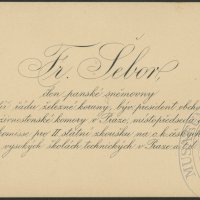 Fr. Šebor,
člen panské sněmovny
řádu železné koruny, býv. president obchod.
živnostenské komory v Praze, místopředseda
komise pro II státní zkoušku na c. k. českých
vysokých školách technických v Praze a t. d.